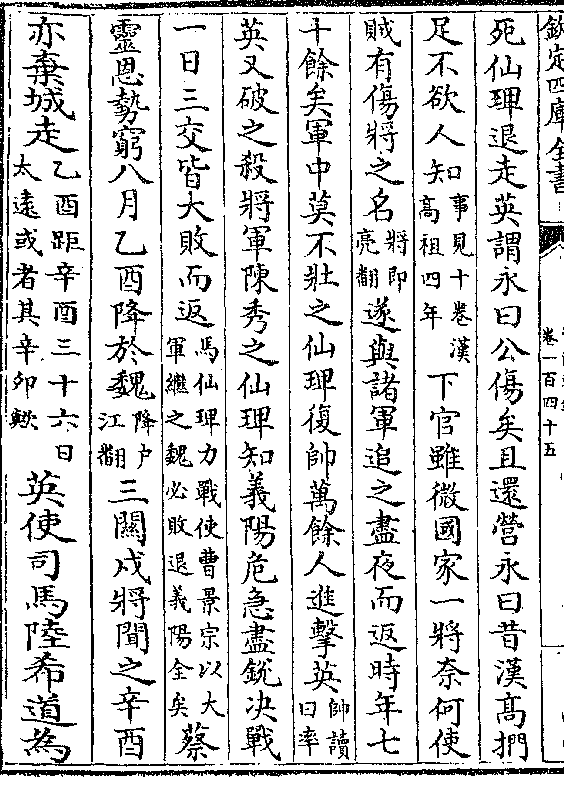 欽定四庫全書
卷一百四十五
死仙琕退走英謂永曰公傷矣且還營永曰昔漢髙捫
足不欲人知事見十卷漢髙祖四年下官雖微國家一將奈何使
賊有傷將之名將即亮翻遂與諸軍追之盡夜而返時年七
十餘矣軍中莫不壯之仙琕復帥萬餘人進擊英帥讀曰率
英又破之殺將軍陳秀之仙琕知義陽危急盡銳决戰
一日三交皆大敗而返馬仙琕力戰使曹景宗以大軍繼之魏必敗退義陽全矣蔡
靈恩勢窮八月乙酉降於魏降户江翻三關戍將聞之辛酉
亦棄城走乙酉距辛酉三十六日太遠或者其辛卯歟英使司馬陸希道為